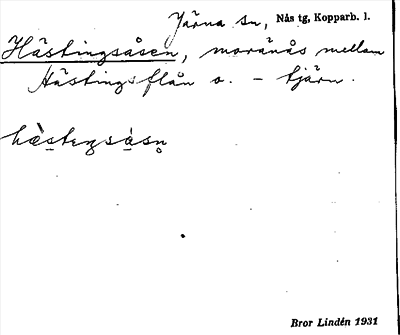 Järna sn, Nås tg, Kopparb. l.
Hästingsåsen, moränås mellan
Hästingsflån o. - tjärn.
hæ̀steŋsåsn̥
Bror Lindén 1931